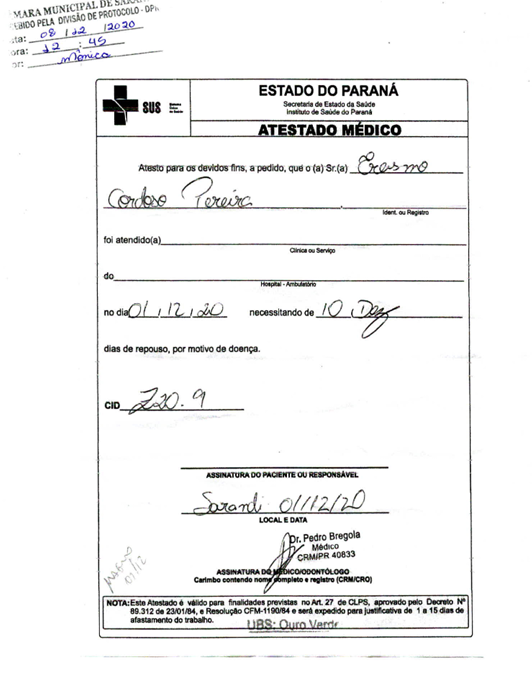 MARA MUNICIPAL DE SARAN
EBIDO PELA DIVISÃO DE PROTOCOLO - DPR
ta: 08 / 12 / 2020
ora: 12 : 45
or: Mônica
SUS Sistema Único de Saúde
ESTADO DO PARANÁ
Secretaria de Estado da Saúde
Instituto de Saúde do Paraná
ATESTADO MÉDICO
Atesto para os devidos fins, a pedido, que o (a) Sr.(a) Erasmo
Cardoso Pereira
Ident. ou Registro
foi atendido(a)
Clínica ou Serviço
do
Hospital - Ambulatório
no dia 01 / 12 / 20 necessitando de 10, Dez
dias de repouso, por motivo de doença.
CID Z20.9
ASSINATURA DO PACIENTE OU RESPONSÁVEL
Sarandi 01/12/20
LOCAL E DATA
Dr. Pedro Bregola
Médico
CRM/PR 40833
ASSINATURA DO MÉDICO/ODONTÓLOGO
Carimbo contendo nome completo e registro (CRM/CRO)
NOTA: Este Atestado é válido para finalidades previstas no Art. 27 de CLPS, aprovado pelo Decreto Nº
89.312 de 23/01/84, e Resolução CFM-1190/84 e será expedido para justificativa de 1 a 15 dias de
afastamento do trabalho.
UBS: Ouro Verde